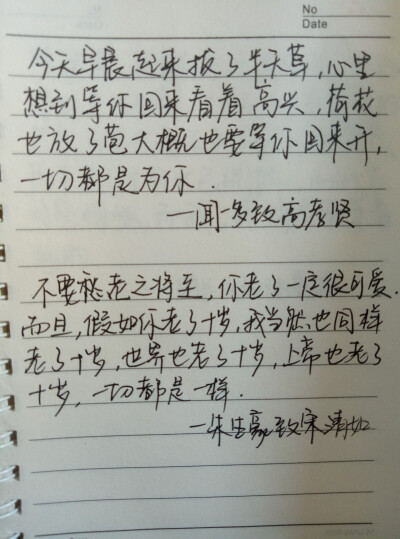 No
Date
今天早晨起来拔了半天草,心里
想到等你回来看着高兴,荷花
也放了苞大概也要等你回来开,
一切都是为你.
—闻一多致高孝贤
不要愁老之将至,你老了一定很可爱.
而且,假如你老了十岁,我当然也同样
老了十岁,世界也老了十岁,上帝也老了
十岁,一切都是一样.
—朱生豪致宋清如